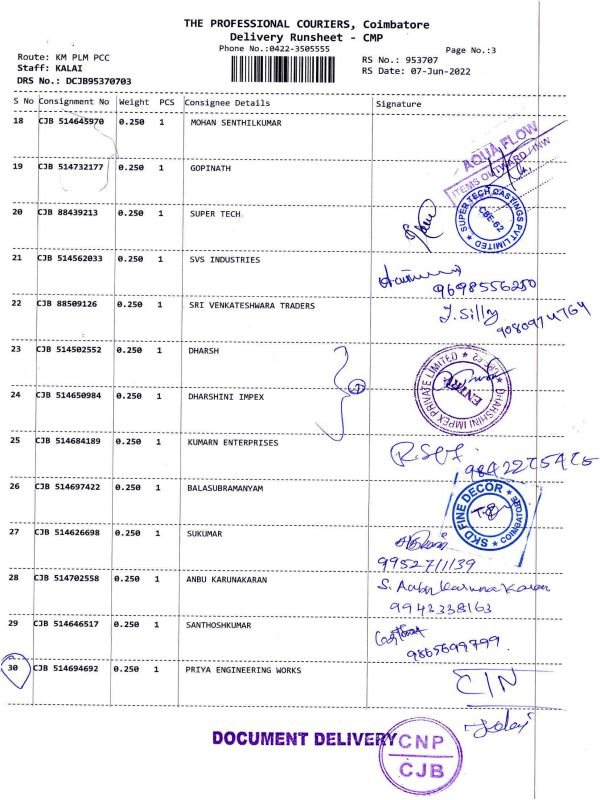 THE PROFESSIONAL COURIERS, Coimbatore
Delivery Runsheet - CMP
Phone No.:0422-3505555
Page No.:3
Route: KM PLM PCC
RS No.: 953707
Staff: KALAI
RS Date: 07-Jun-2022
DRS No.: DCJB95370703
S No Consignment No Weight PCS Consignee Details Signature
18 CJB 514645970 0.250 1 MOHAN SENTHILKUMAR
AQUA FLOW
ITEMS OUTWARD / INW
19 CJB 514732177 0.250 1 GOPINATH
20 CJB 88439213 0.250 1 SUPER TECH
SUPER TECH CASTINGS PVT LIMITED ★
CBE-62
21 CJB 514562033 0.250 1 SVS INDUSTRIES
9698556250
22 CJB 88509126 0.250 1 SRI VENKATESHWARA TRADERS
J. Silly
9080974764
23 CJB 514502552 0.250 1 DHARSH
24 CJB 650984 0.250 1 DHARSHINI IMPEX
★ DHARSHINI IMPEX PRIVATE LIMITED ★
ENTRY
25 CJB 514684189 0.250 1 KUMARN ENTERPRISES
9842275475
26 CJB 514697422 0.250 1 BALASUBRAMANYAM
SKD FINE DECOR
★ COIMBATORE
27 CJB 514626698 0.250 1 SUKUMAR
9952711139
28 CJB 514702558 0.250 1 ANBU KARUNAKARAN
S. Anbu Karuna Karan
9942338163
29 CJB 514646517 0.250 1 SANTHOSHKUMAR
9865699799
30 CJB 514694692 0.250 1 PRIYA ENGINEERING WORKS
C/N
Kalai
DOCUMENT DELIVERY
CNP
CJB